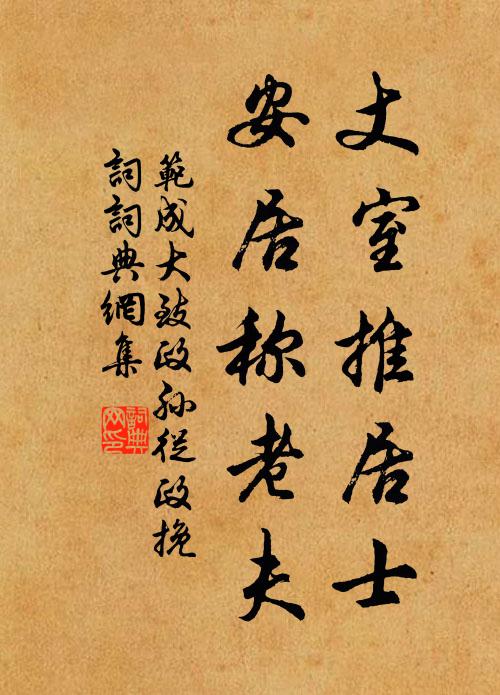 丈室推居士
安居称老夫
範成大致政孙從政挽
詞詞典網集
詞典网印